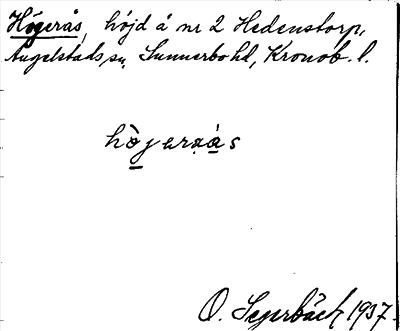 Högerås, höjd å nr 2 Hedenstorp,
Angelstads sn, Sunnerbo hd, Kronob. l.
hògeraás
O. Segerbäck 1937.